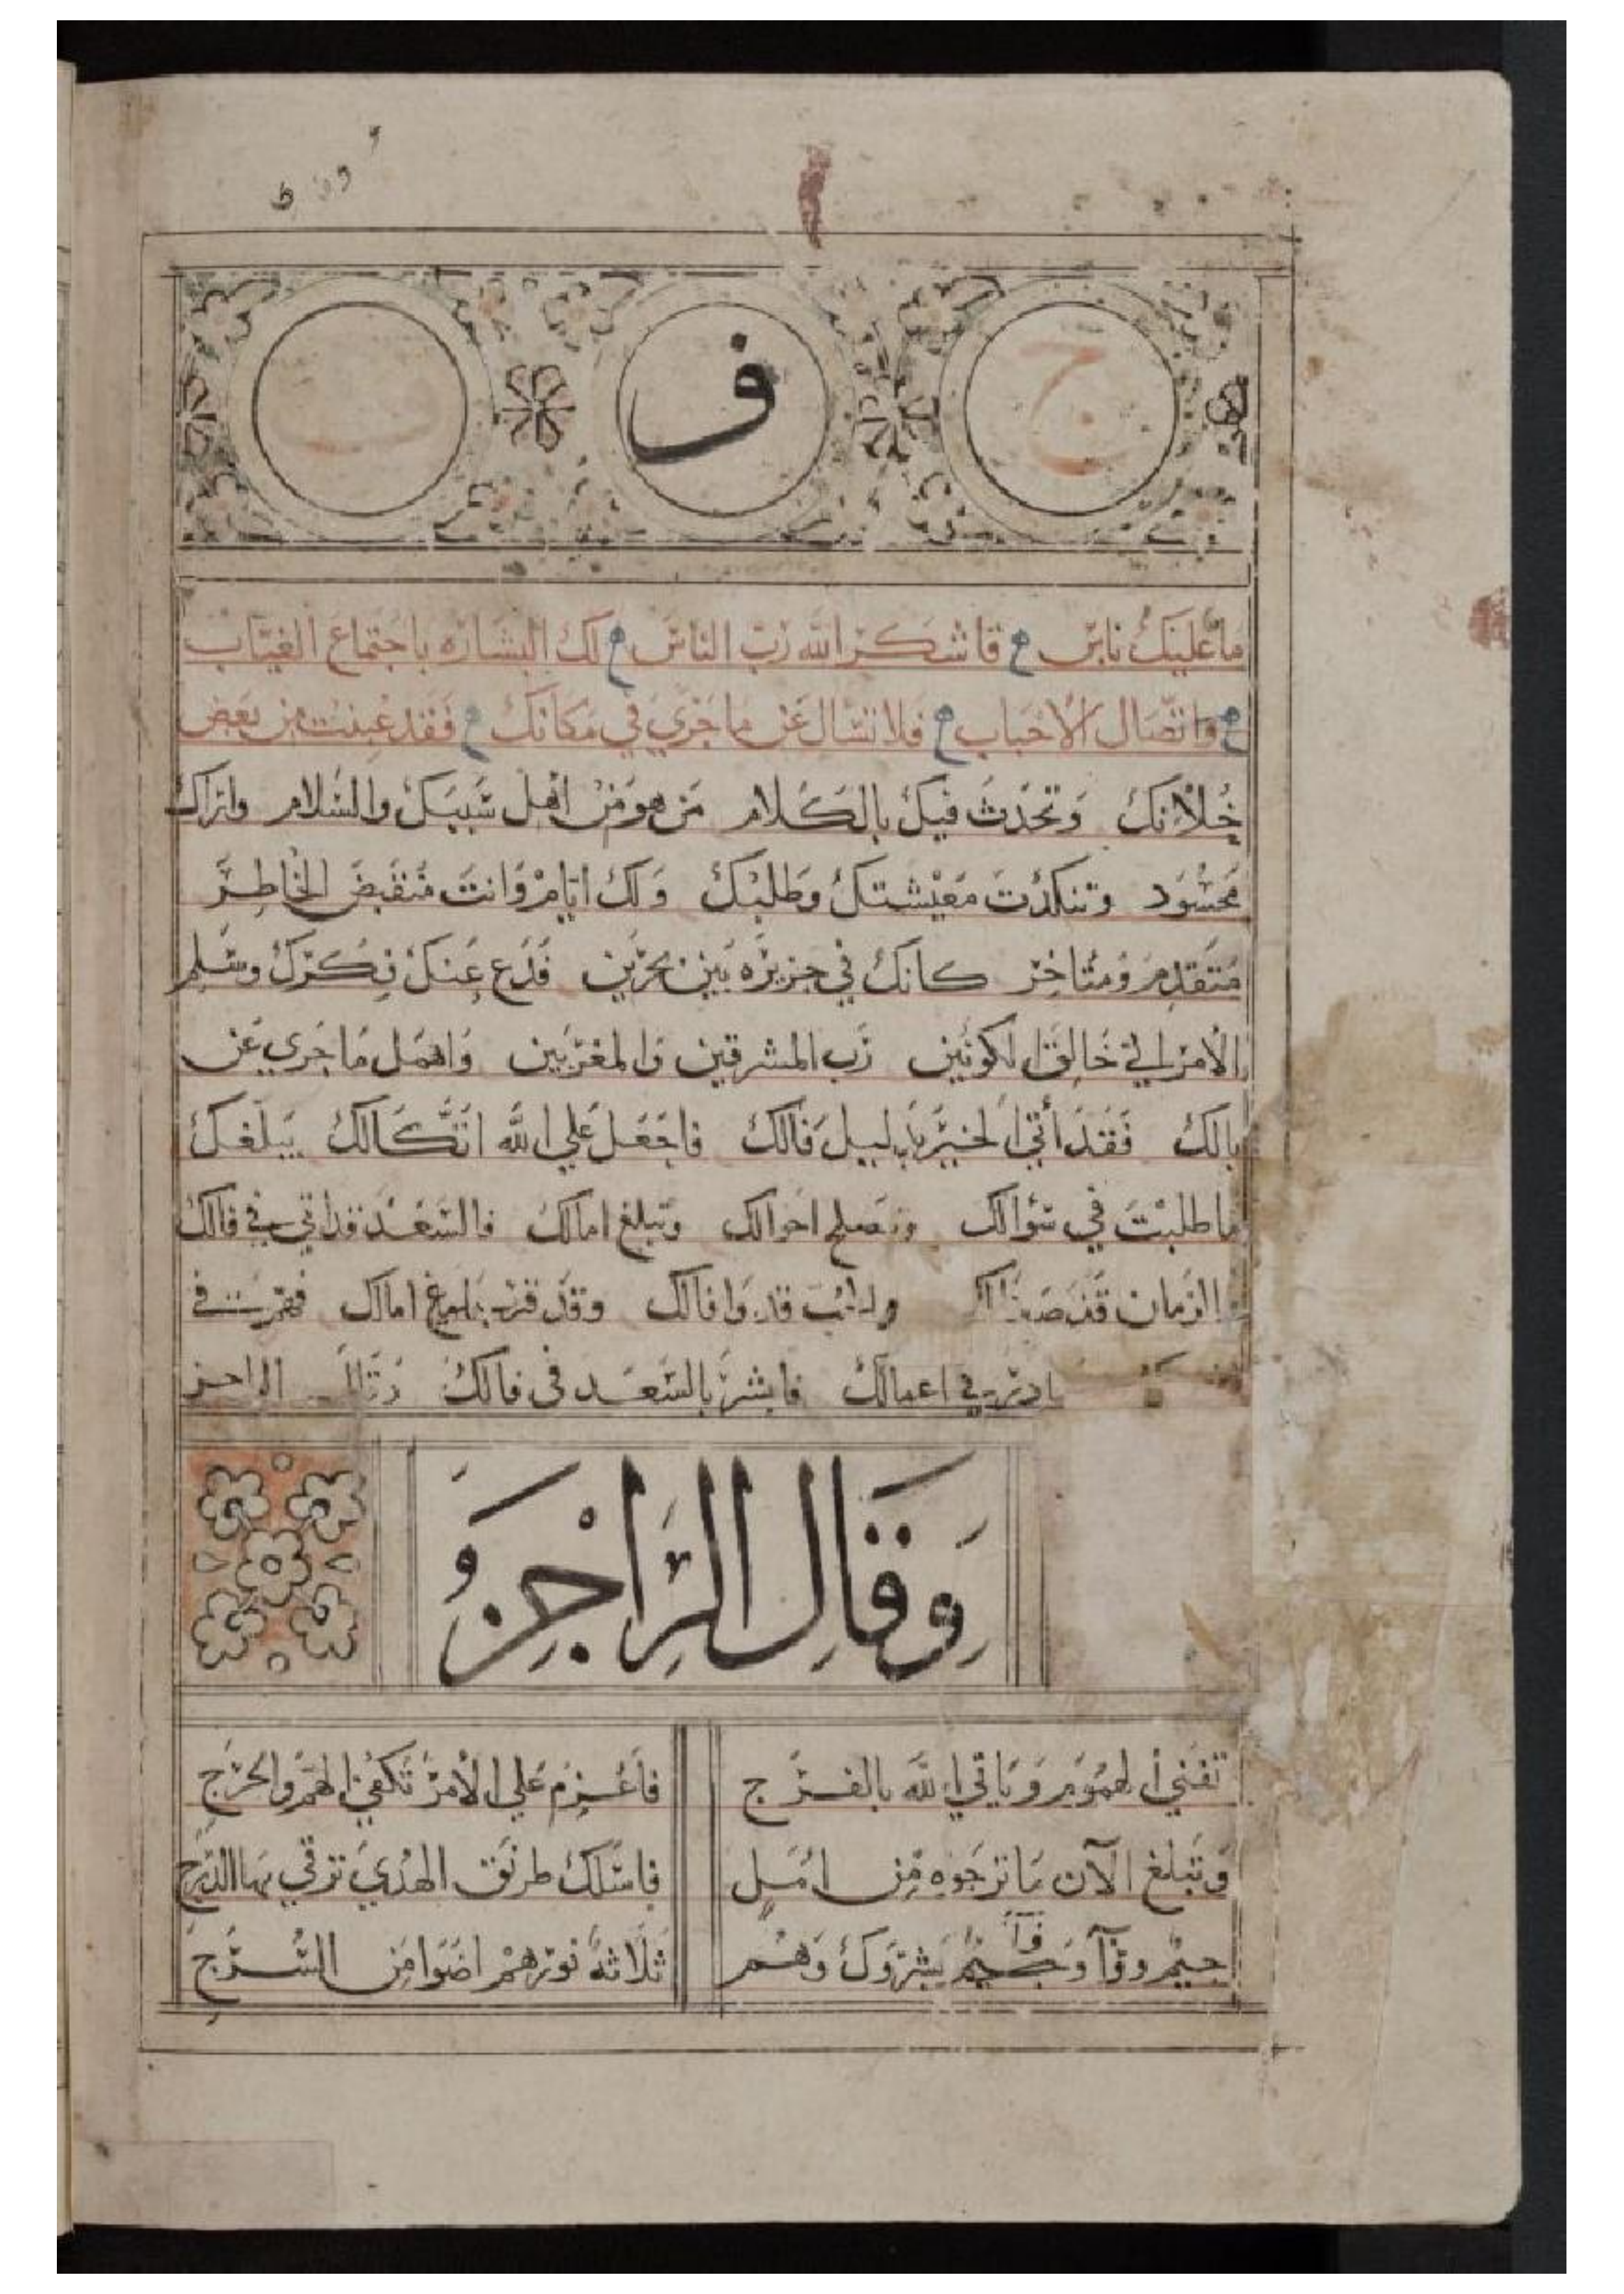 ج ف ب
ما عليك باس فاشكر الله رب الناس لك البشاره باجتماع الغياب
واتصال الاحباب فلا تسال عن ما جري في مكانك فقد غبنت من بعض
خلانك وتحدث فيك بالكلام من هو من اهل سببك والسلام واراك
محسود وتنكدت معيشتك وطلبك ولك ايام وانت منقبض الخاطر
متقدم ومتاخر كانك في جزيره بين بحرين فدع عنك فكرك وسلم
الامر الي خالق الكونين رب المشرقين والمغربين واهمل ما جري عن
بالك فقد أتي الخير بدليل فالك فاجعل علي الله اتكالك يبلغك
ما طلبت في سؤالك وتصلح احوالك وتبلغ امالك فالسعد قد اتي في فالك
الزمان قد وقد قرب بلوغ امالك في
بادر في اعمالك فابشر بالسعد في فالك
وقال الراجز
تفني الهموم وياتي الله بالفرج فاعزم علي الامر تكفي الهم والحرج
وتبلغ الآن ما ترجوه من امل فاسلك طريق الهدي ترقي بها الدرج
جيم وفآ وجيم بشروك وهم ثلاثة نورهم اضوا من السرج
فآ